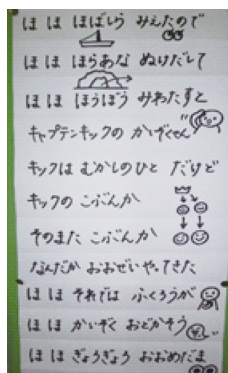 ほ ほ ほばしら みえたので
ほ ほ ほらあな ぬけだして
ほ ほ ほうぼう みわたすと
キャプテンキックの かいぞくせん
キックは むかしのひと だけど
キックの こぶんか
そのまた こぶんか
なんだか おおぜいやってきた
ほ ほ それでは ふくろうが
ほ ほ かいぞく おどかそう
ほ ほ ぎょうぎょう おおめだま